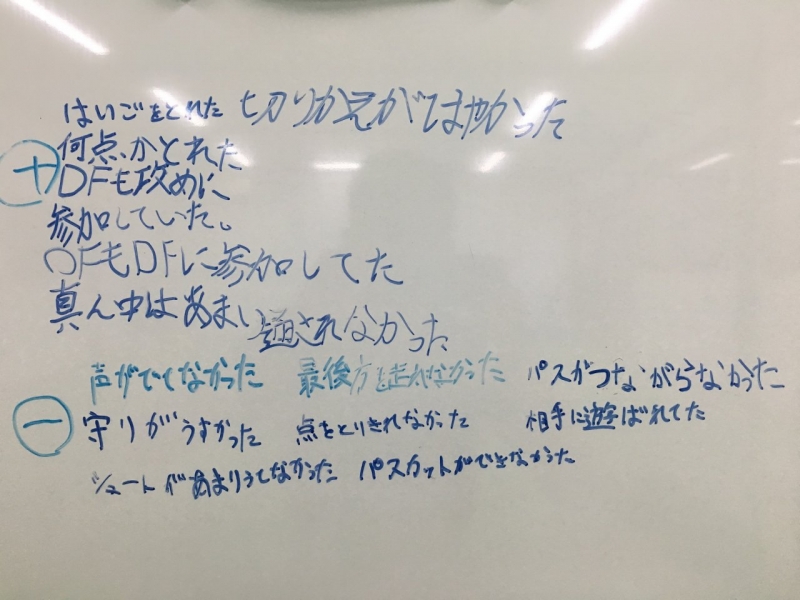 はいごをとれた 切りかえがはやかった
+ 何点かとれた
DFも攻めに
参加していた。
OFもDFに参加してた
真ん中はあまり通されなかった
声がでてなかった 最後方を走れなかった パスがつながらなかった
- 守りがうすかった 点をとりきれなかった 相手に遊ばれてた
シュートがあまりうてなかった パスカットができなかった